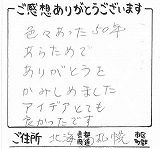 ご感想ありがとうございます
色々あった50年
あらためて
ありがとうを
かみしめました
アイデアとても
良かったです
ご住所 北海 都道府県 札幌 市区町村